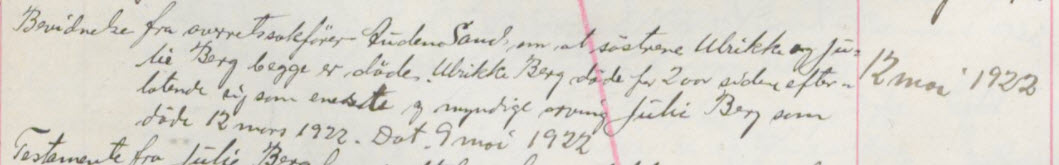 Bevidnelse fra overretssakfører Audensand, om at søstrene Ulrikke og Ju-
lie Berg begge er døde. Ulrikke Berg døde for 2 aar siden efter-
latende sig som eneste og myndige arving Julie Berg som
døde 12 mars 1922. Dat. 9 mai 1922
12 mai 1922
Testamente fra Julie Berg